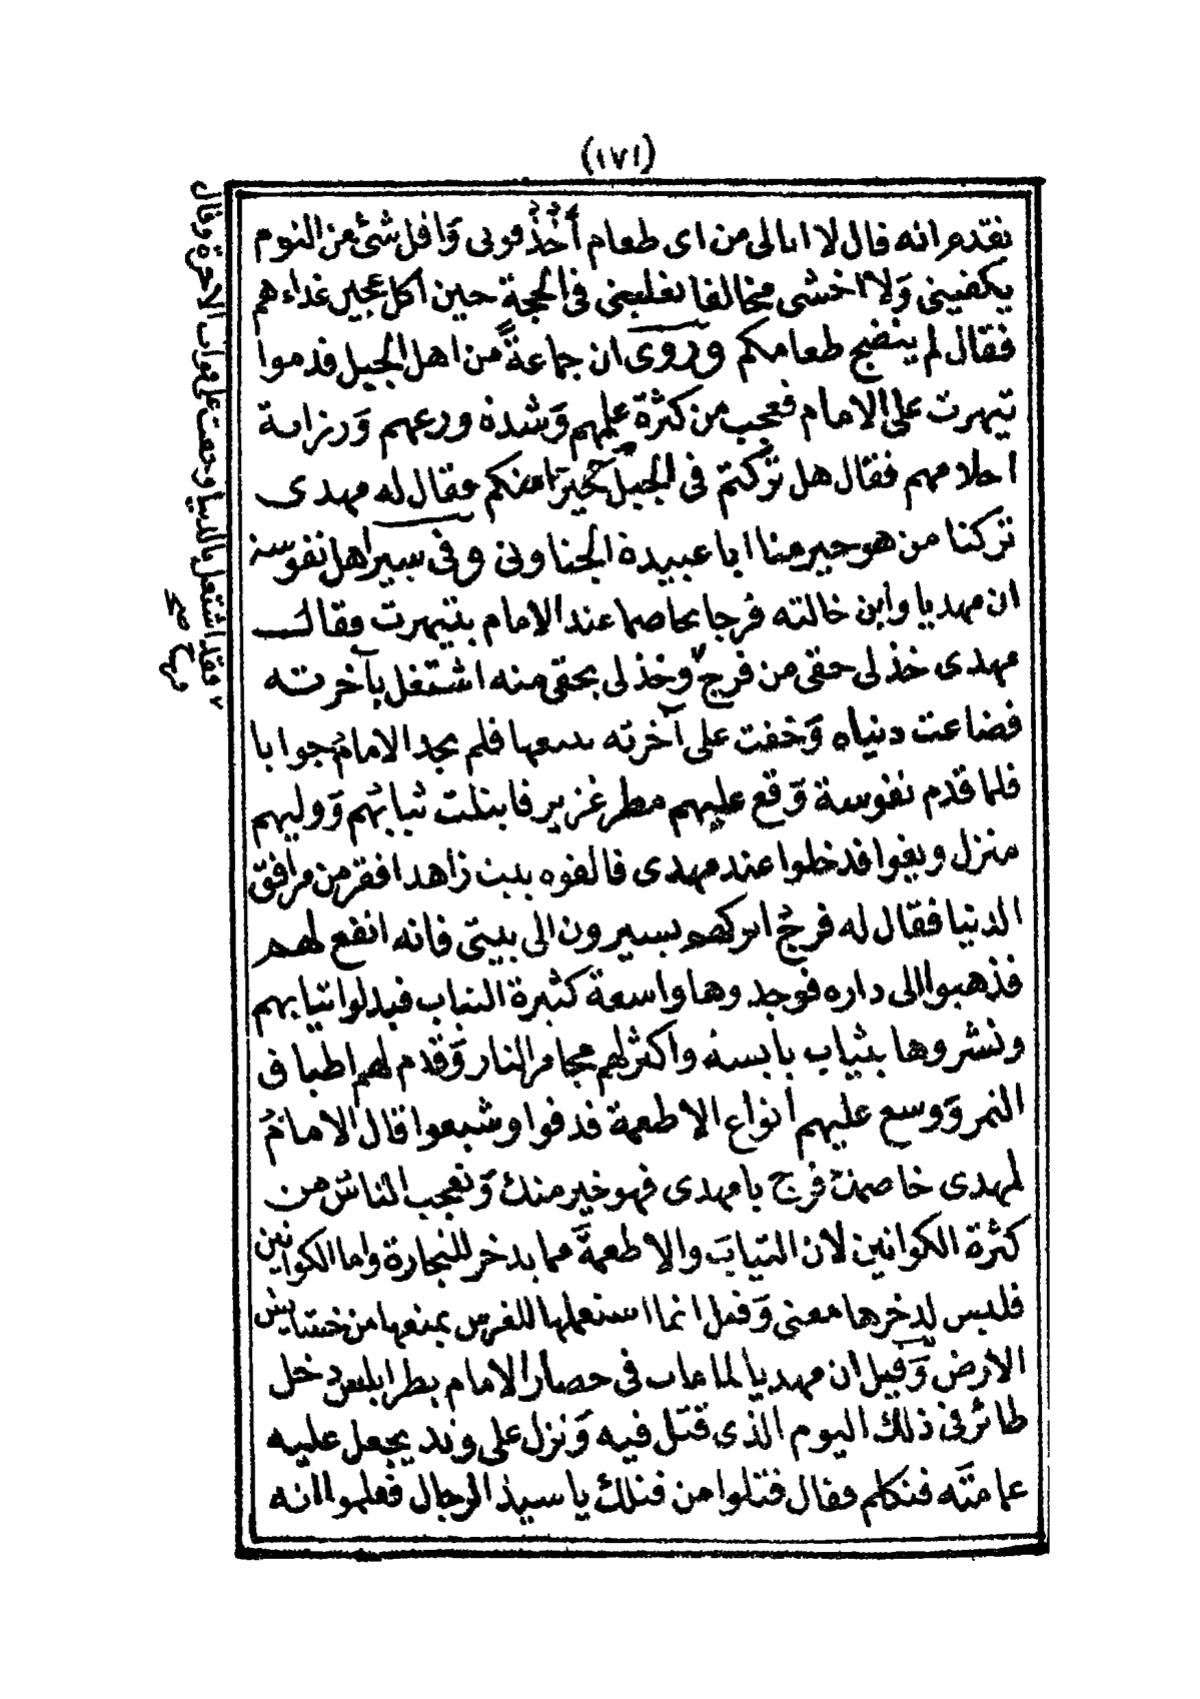 (١٧١)
تقدم انه قال لا ابالى من اى طعام أخذ قوتى وَاقل شئ من النوم
يكفينى وَلا اخشى مخالفا يغلبنى فى الحجة حين اكل عجين غداءهم
فقال لم ينضج طعامكم وروى ان جماعةً من اهل الجبل قدموا
تيهرت على الامام فعجب من كثرة علمهم وَشدة ورعهم وَرزانة
احلامهم فقال هل تركتم فى الجبل خيرَا منكم فقال له مهدى
تركنا من هو خير منا ابا عبيدة الجناونى وفى سير اهل نفوسة
ان مهديا وابن خالته فرجا تخاصما عند الامام بتيهرت فقال
مهدى خذ لى حقى من فرج ٢ وخذ لى بحقى منه اشتغل بآخرته
فضاعت دنياه وَخفت على آخرته فلم يجد الامامُ جوابا
فلما قدم نفوسة وَقع عليهم مطر غزير فابتلت ثيابُهم وَوليهم
منزل ويغوا فدخلوا عند مهدى فالفوه ببيت زاهدا افقر من مرافق
الدنيا فقال له فرجُ اتركهم يسيرون الى بيتى فانه انفع لهم
فذهبوا الى داره فوجدوها واسعة كثيرة الثياب فبدلوا ثيابهم
ونشروها بثياب يابسة واكثر لهم مجامر النار وَقدم لهم اطباق
التمر وَوسع عليهم أنواع الاطعمة فدفوا وشبعوا قال الامامُ
لمهدى خاصمت فرج يا مهدى فهو خير منك وَتعجب الناسُ من
كثرة الكوانين لان الثيابَ والاطعمةَ مما يدخر للتجارة واما الكوانين
فليس لدخرها معنى وَقيل انما استعملها للغرس يمنعها من خشاش
الارض وَقيل ان مهديا لما مات فى حصار الامام بطرابلس دخل
طائر فى ذلك اليوم الذى قتل فيه وَنزل على وتد يجعل عليه
عمامتَه فتكلم فقال قتلوا من قتلك يا سيدَ الرجال فعلموا انه
٢ فقد اشتغل بالدنيا وخفت على فوات الاخرة وقال
فرج صح